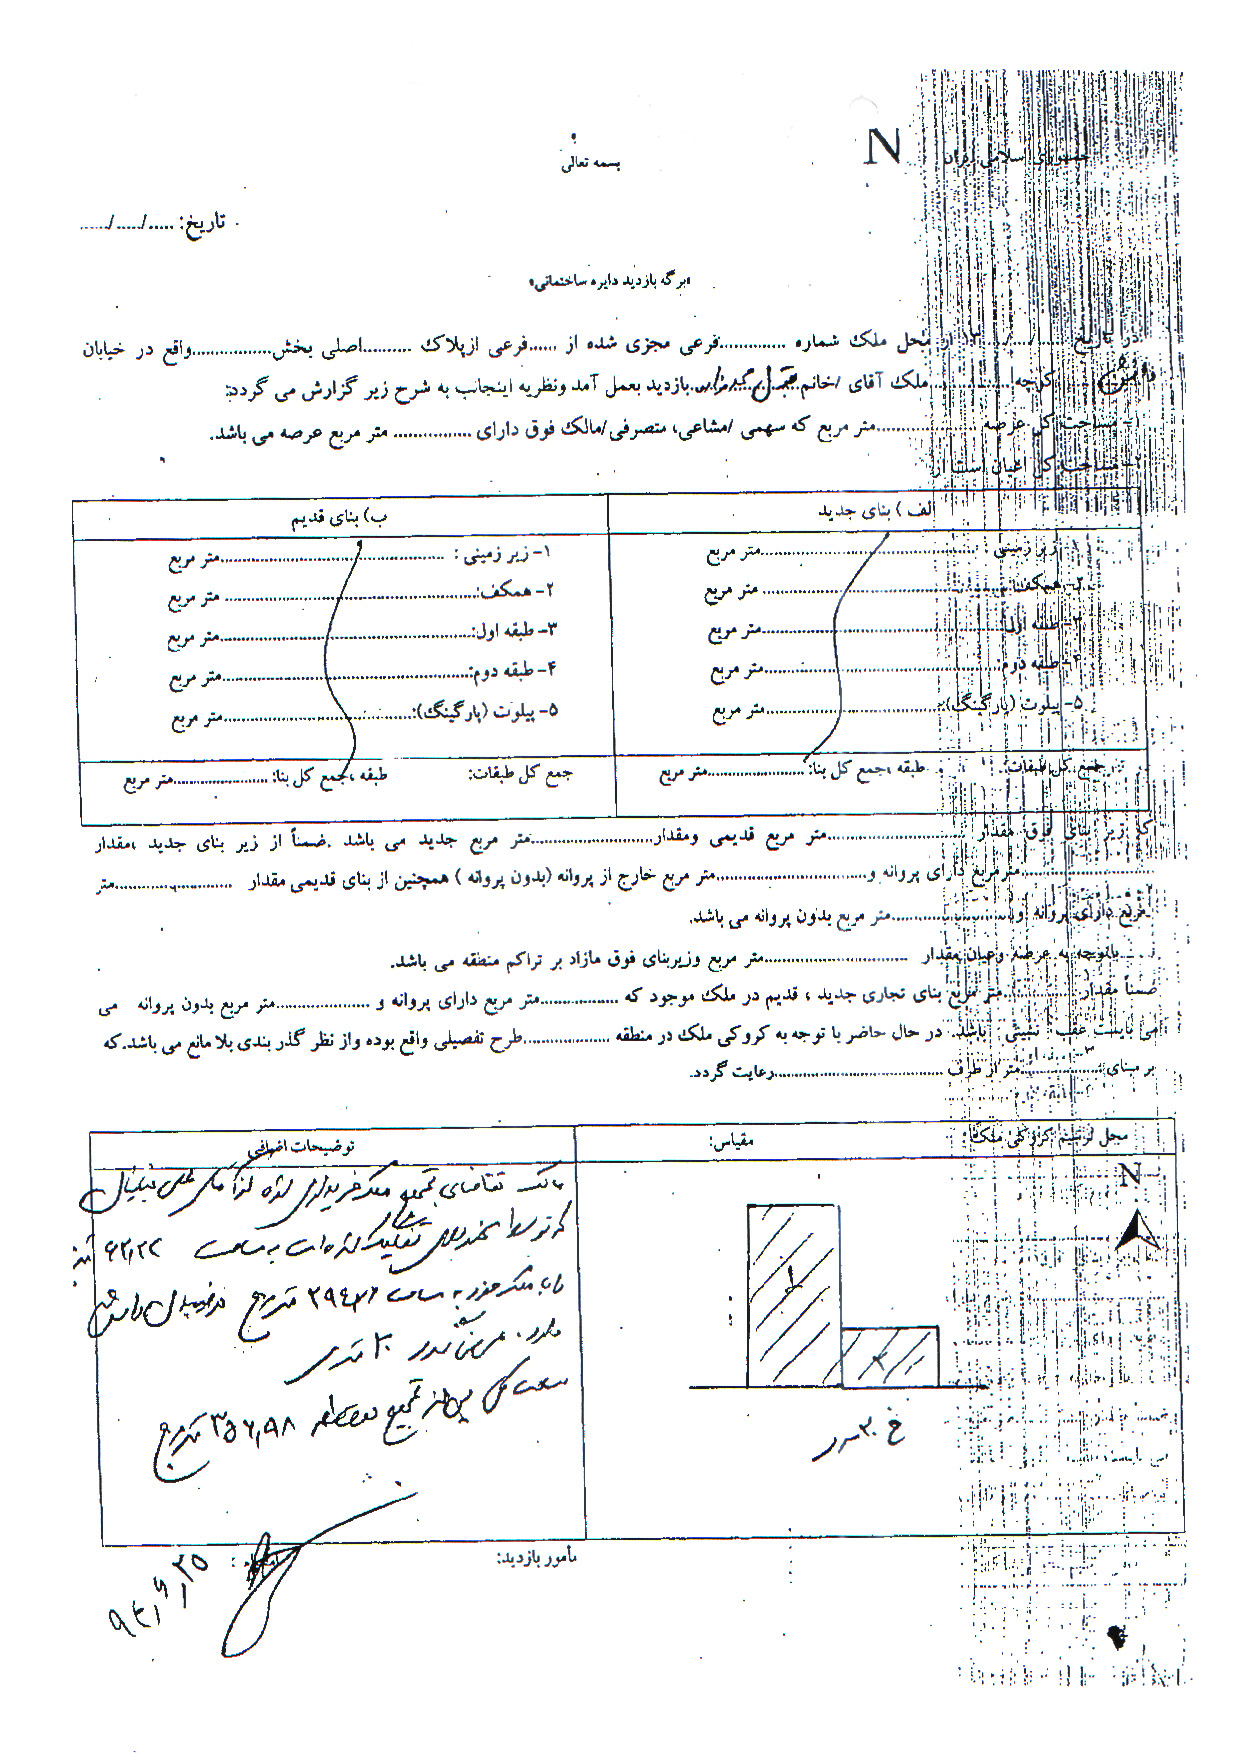 جمهوری اسلامی ایران
N
بسمه تعالی
تاریخ: ...../...../.....
«برگه بازدید دایره ساختمانی»
در تاریخ ...../...../..۱۳ از محل ملک شماره .............فرعی مجزی شده از ......فرعی ازپلاک .........اصلی بخش...............واقع در خیابان
دانش کوچه................ملک آقای /خانم ............بازدید بعمل آمد ونظریه اینجانب به شرح زیر گزارش می گردد:
۱- مساحت کل عرصه ....................متر مربع که سهمی /مشاعی، متصرفی/مالک فوق دارای ............... متر مربع عرصه می باشد.
۲- مساحت کل اعیان است از
الف ) بنای جدید
ب) بنای قدیم
۱- زیر زمینی : ..........................................متر مربع
۱- زیر زمینی : ..........................................متر مربع
۲- همکف : ..........................................متر مربع
۲- همکف: ..........................................متر مربع
۳- طبقه اول: ..........................................متر مربع
۳- طبقه اول: ..........................................متر مربع
۴- طبقه دوم: ..........................................متر مربع
۴- طبقه دوم: ..........................................متر مربع
۵- پیلوت (پارگینگ): ..................................متر مربع
۵- پیلوت (پارگینگ): ..................................متر مربع
جمع کل طبقات: طبقه ،جمع کل بنا: ....................متر مربع
جمع کل طبقات: طبقه ،جمع کل بنا: ....................متر مربع
کل زیر بنای فوق مقدار ..........................متر مربع قدیمی ومقدار........................متر مربع جدید می باشد .ضمناً از زیر بنای جدید ،مقدار
..........................مترمربع دارای پروانه و............................متر مربع خارج از پروانه (بدون پروانه ) همچنین از بنای قدیمی مقدار ......................متر
مربع دارای پروانه و.......................متر مربع بدون پروانه می باشد.
باتوجه به عرصه وعیان مقدار ..........................متر مربع وزیربنای فوق مازاد بر تراکم منطقه می باشد.
ضمناً مقدار ..............متر مربع بنای تجاری جدید ، قدیم در ملک موجود که ...............متر مربع دارای پروانه و ..................متر مربع بدون پروانه می
می بایست عقب نشینی باشد. در حال حاضر با توجه به کروکی ملک در منطقه .................طرح تفصیلی واقع بوده واز نظر گذر بندی بلا مانع می باشد.که
بر مبنای .................متر از طرف ................................رعایت گردد.
محل ترسیم کروکی ملک:
مقیاس:
توضیحات اضافی
N
۱
۲
خ ۳۰ متری
مالک تقاضای تجمیع ملک خریداری شده از
که توسط تفکیک شده است به مساحت ۶۲٫۲۲
را با ملک خود به مساحت ۲۹۴٫۷۶ متر مربع
دارد. عرض گذر ۳۰ متری
مساحت کل پس از تجمیع ۳۵۶٫۹۸ متر مربع
مأمور بازدید:
امضاء :
۹۲٫۶٫۲۵